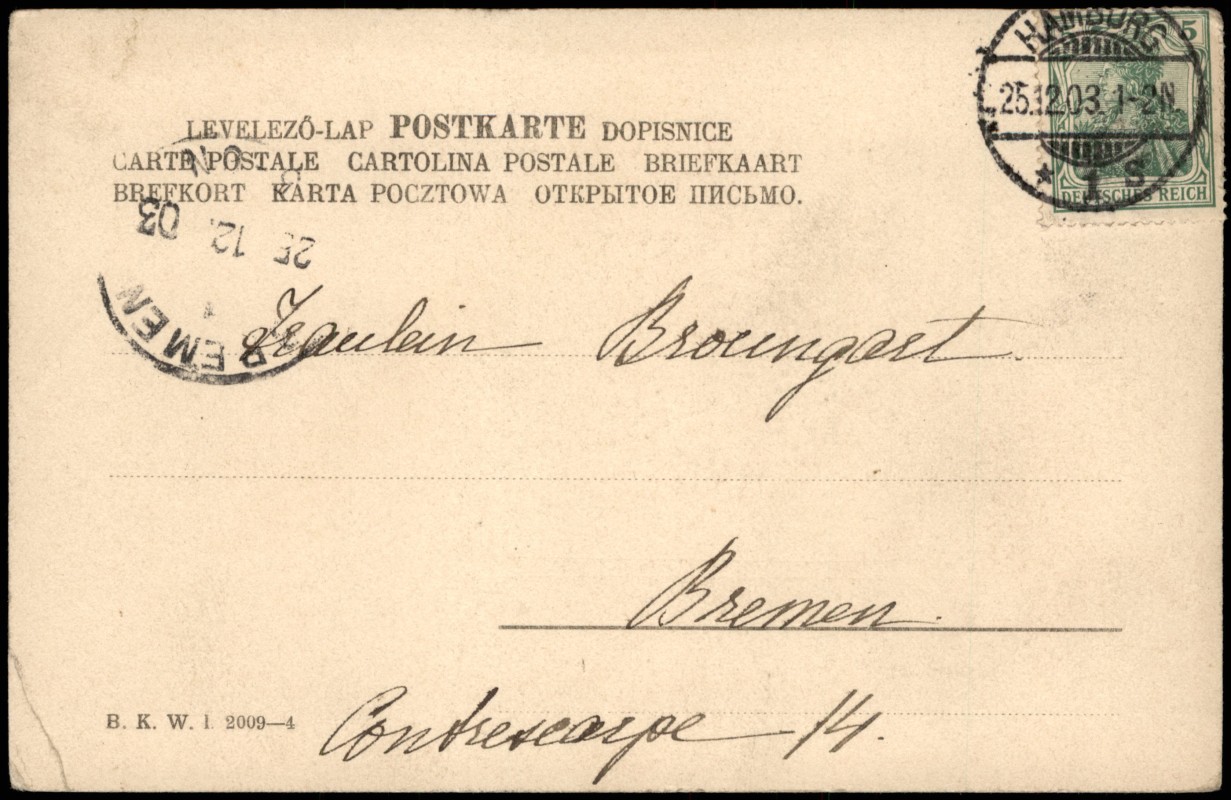 HAMBURG
5
25.12.03. 1-2N.
* 1 S
DEUTSCHES REICH
LEVELEZŐ-LAP POSTKARTE DOPISNICE
CARTE POSTALE CARTOLINA POSTALE BRIEFKAART
BREFKORT KARTA POCZTOWA ОТКРЫТОЕ ПИСЬМО.
BREMEN
25 12. 03
Fräulein Broungart.
Bremen.
B. K. W. I. 2009—4
Contrescarpe 14.